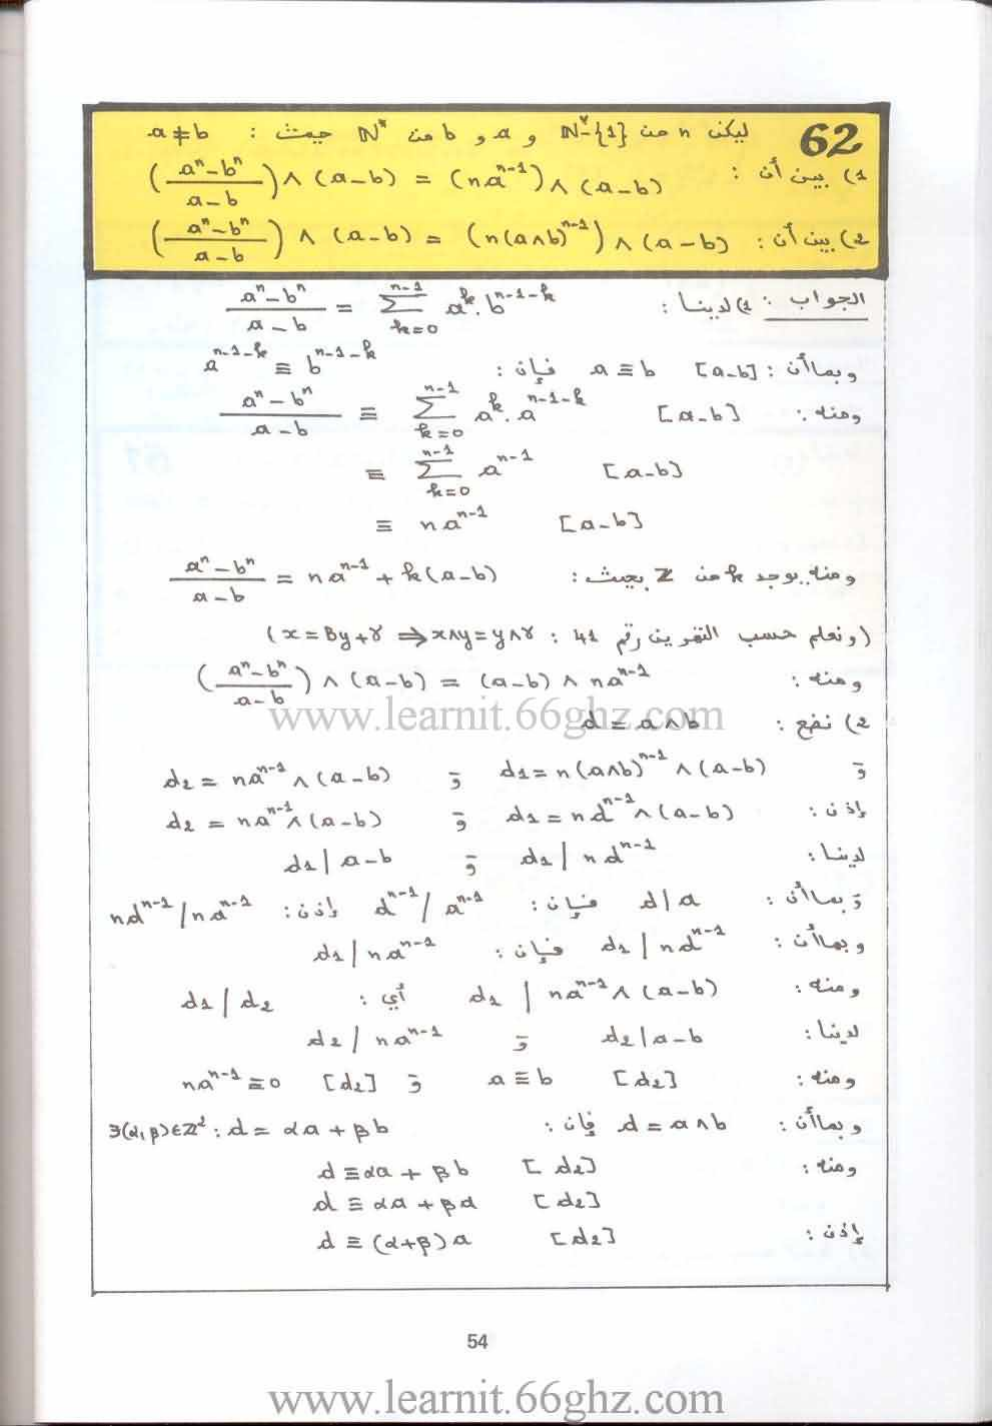 62 ليكن n من ℕ*-{1} و a و b من ℕ* حيث : a≠b
1) بين أن : ((aⁿ-bⁿ)/(a-b)) ∧ (a-b) = (naⁿ⁻¹) ∧ (a-b)
2) بين أن : ((aⁿ-bⁿ)/(a-b)) ∧ (a-b) = (n(a∧b)ⁿ⁻¹) ∧ (a-b)
الجواب : 1) لدينا : (aⁿ-bⁿ)/(a-b) = Σ_{k=0}^{n-1} aᵏ.bⁿ⁻¹⁻ᵏ
وبما أن : a ≡ b [a-b] فإن : aⁿ⁻¹⁻ᵏ ≡ bⁿ⁻¹⁻ᵏ
ومنه : (aⁿ-bⁿ)/(a-b) ≡ Σ_{k=0}^{n-1} aᵏ.aⁿ⁻¹⁻ᵏ [a-b]
≡ Σ_{k=0}^{n-1} aⁿ⁻¹ [a-b]
≡ naⁿ⁻¹ [a-b]
ومنه يوجد k من Z بحيث : (aⁿ-bⁿ)/(a-b) = naⁿ⁻¹ + k(a-b)
(ونعلم حسب التمرين رقم 41 : x = βy+γ ⇒ x∧y = y∧γ)
ومنه : ((aⁿ-bⁿ)/(a-b)) ∧ (a-b) = (a-b) ∧ naⁿ⁻¹
www.learnit.66ghz.com
2) نضع : d = a∧b
و d₁ = n(a∧b)ⁿ⁻¹ ∧ (a-b) و d₂ = naⁿ⁻¹ ∧ (a-b)
إذن : d₁ = ndⁿ⁻¹ ∧ (a-b) و d₂ = naⁿ⁻¹ ∧ (a-b)
لدينا : d₁ | ndⁿ⁻¹ و d₁ | a-b
وبما أن : d | a فإن : dⁿ⁻¹ / aⁿ⁻¹ إذن : ndⁿ⁻¹ / naⁿ⁻¹
وبما أن : d₁ | ndⁿ⁻¹ فإن : d₁ | naⁿ⁻¹
ومنه : d₁ | naⁿ⁻¹ ∧ (a-b) أي : d₁ / d₂
لدينا : d₂ | a-b و d₂ | naⁿ⁻¹
ومنه : a ≡ b [d₂] و naⁿ⁻¹ ≡ 0 [d₂]
وبما أن : d = a∧b فإن : ∃(α,β)∈ℤ² : d = αa + βb
ومنه : d ≡ αa + βb [d₂]
d ≡ αa + βa [d₂]
إذن : d ≡ (α+β)a [d₂]
54
www.learnit.66ghz.com